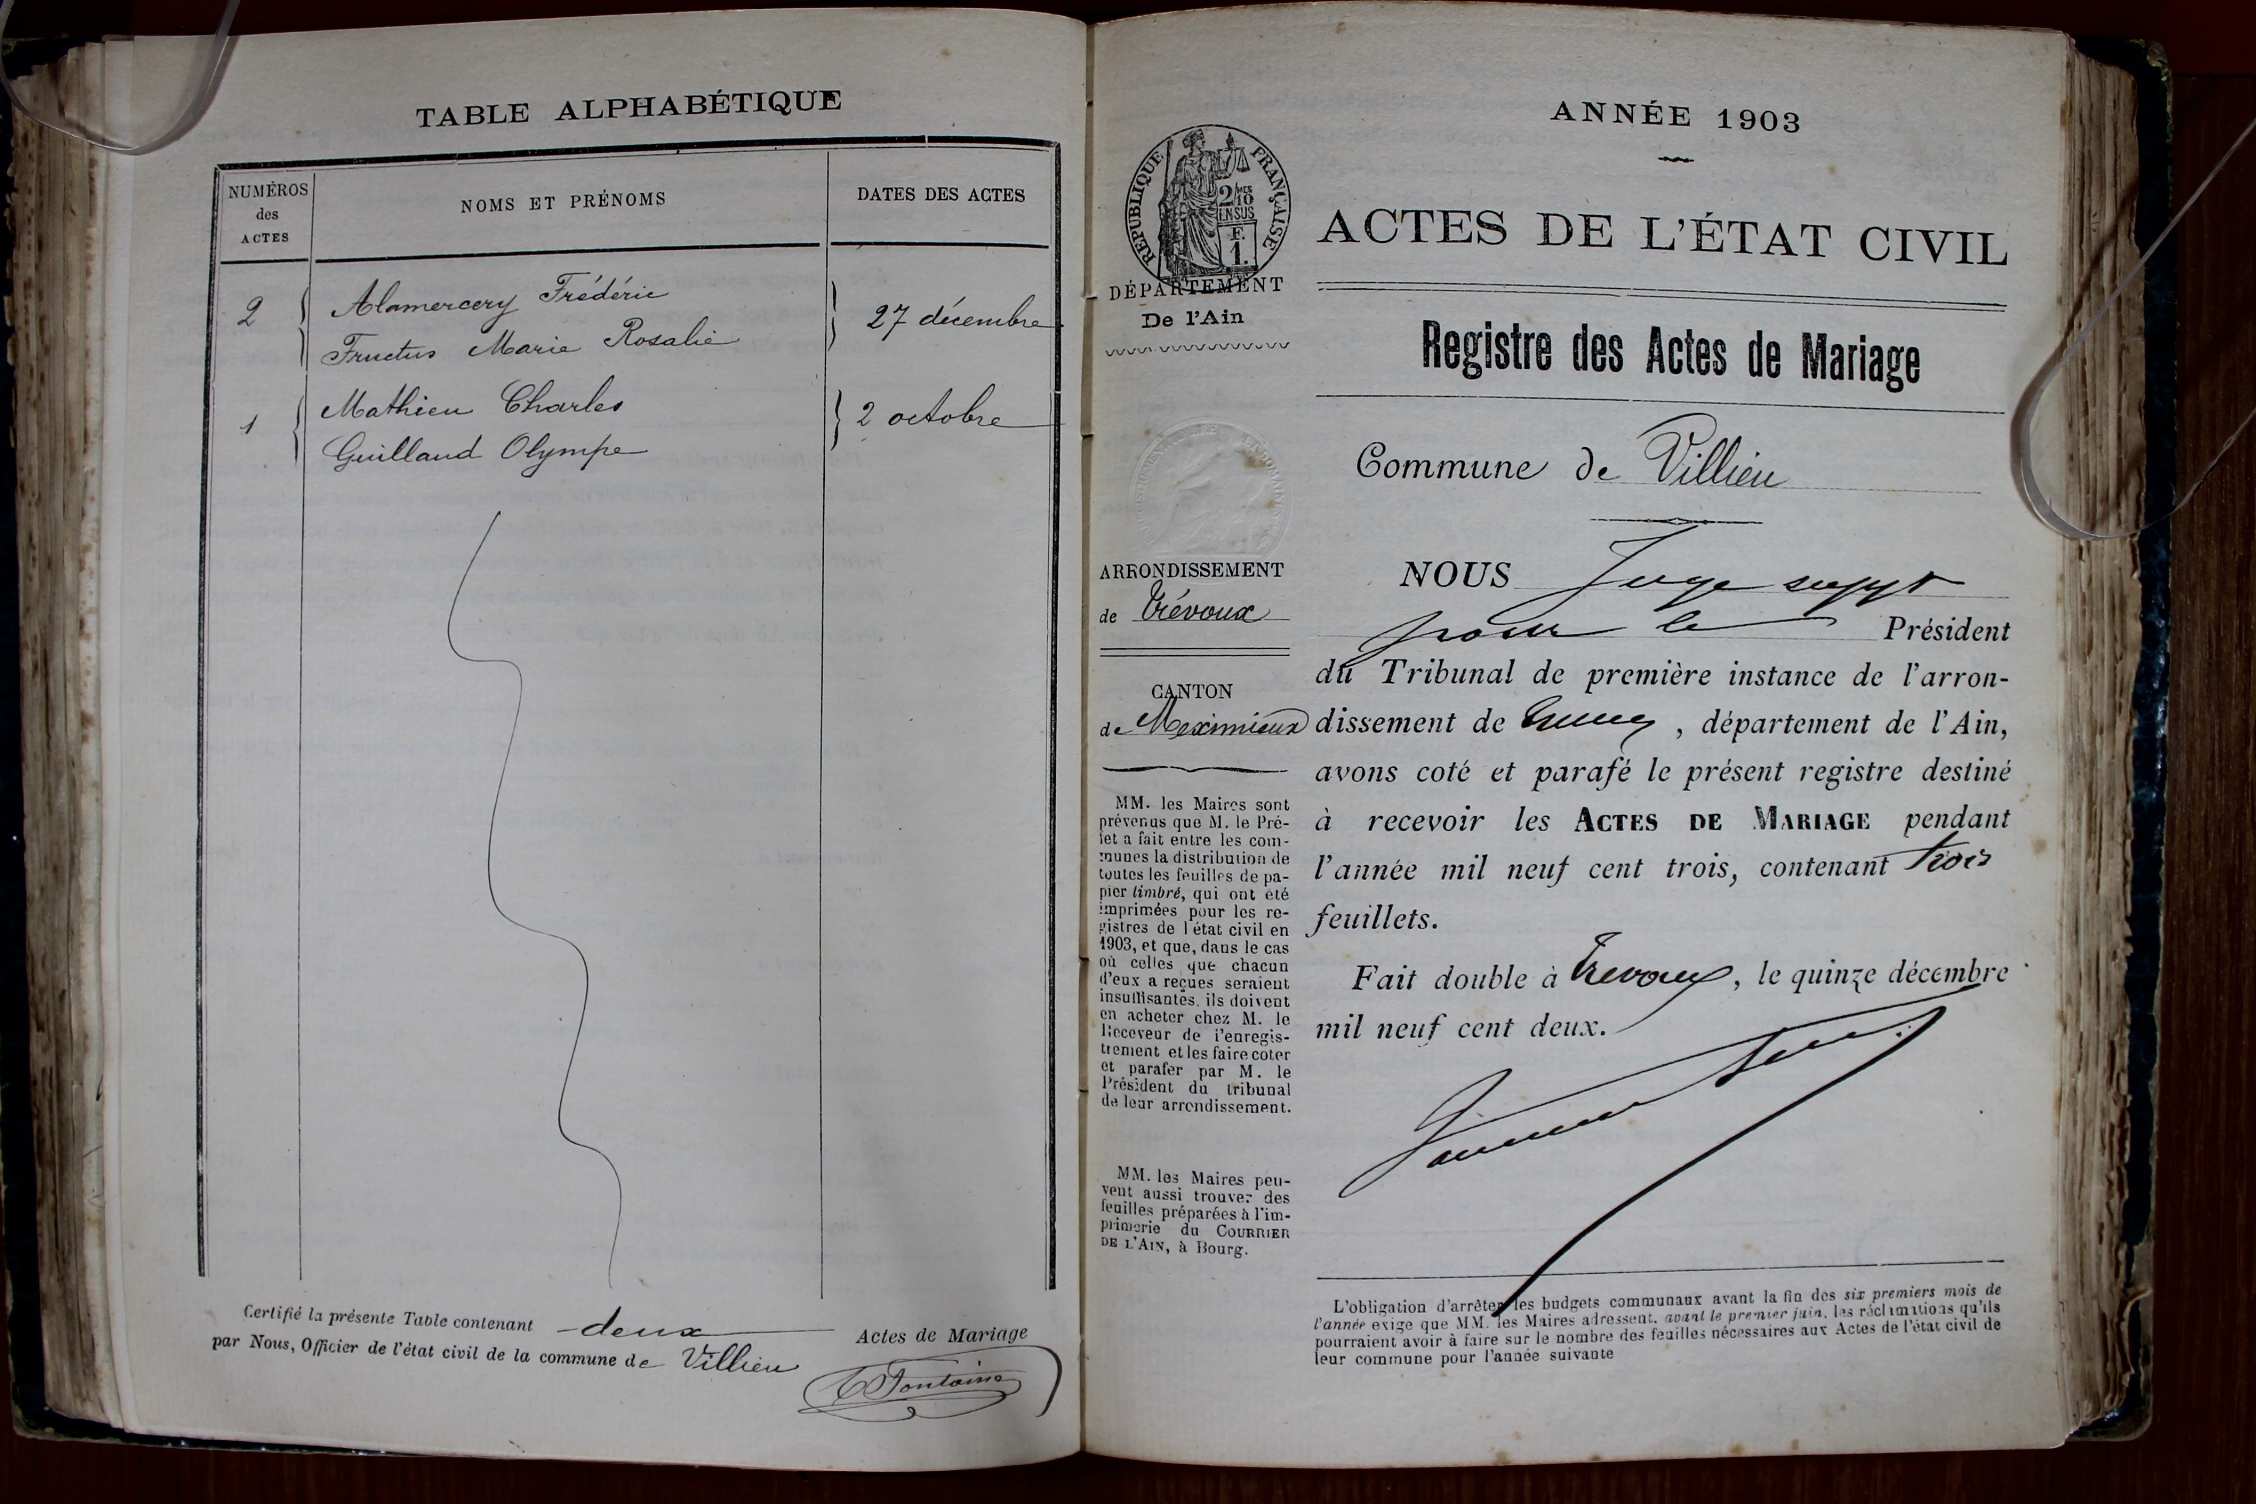 TABLE ALPHABÉTIQUE
NUMÉROS
des
ACTES
NOMS ET PRÉNOMS
DATES DES ACTES
2
Alamercery Frédéric
Fructus Marie Rosalie
27 décembre
1
Mathieu Charles
Guilland Olympe
2 octobre
Certifié la présente Table contenant deux Actes de Mariage
par Nous, Officier de l'état civil de la commune de Villieu
Fontaine
ANNÉE 1903
RÉPUBLIQUE FRANÇAISE
2/10 MES
EN SUS
F.
1.
DÉPARTEMENT
De l'Ain
ARRONDISSEMENT
de Trévoux
CANTON
de Meximieux
MM. les Maires sont
prévenus que M. le Pré-
fet a fait entre les com-
munes la distribution de
toutes les feuilles de pa-
pier timbré, qui ont été
imprimées pour les re-
gistres de l'état civil en
1903, et que, dans le cas
où celles que chacun
d'eux a reçues seraient
insuffisantes, ils doivent
en acheter chez M. le
Receveur de l'enregis-
trement et les faire coter
et parafer par M. le
Président du tribunal
de leur arrondissement.
MM. les Maires peu-
vent aussi trouver des
feuilles préparées à l'im-
primerie du COURRIER
DE L'AIN, à Bourg.
ACTES DE L'ÉTAT CIVIL
Registre des Actes de Mariage
Commune de Villieu
NOUS Juge suppt
pour le Président
du Tribunal de première instance de l'arron-
dissement de Trevoux, département de l'Ain,
avons coté et parafé le présent registre destiné
à recevoir les ACTES DE MARIAGE pendant
l'année mil neuf cent trois, contenant trois
feuillets.
Fait double à Trevoux, le quinze décembre
mil neuf cent deux.
L'obligation d'arrêter les budgets communaux avant la fin des six premiers mois de
l'année exige que MM. les Maires adressent, avant le premier juin, les réclamations qu'ils
pourraient avoir à faire sur le nombre des feuilles nécessaires aux Actes de l'état civil de
leur commune pour l'année suivante